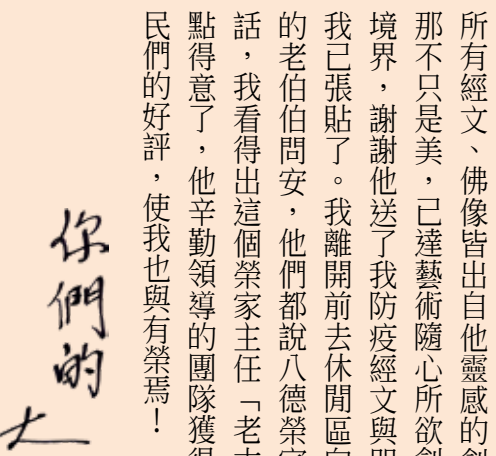 所有經文、佛像皆出自他靈感的創
那不只是美，已達藝術隨心所欲創
境界，謝謝他送了我防疫經文與
我已張貼了。我離開前去休閒區向
的老伯伯問安，他們都說八德榮家
話，我看得出這個榮家主任「老大
點得意了，他辛勤領導的團隊獲得
民們的好評，使我也與有榮焉！
你們的大